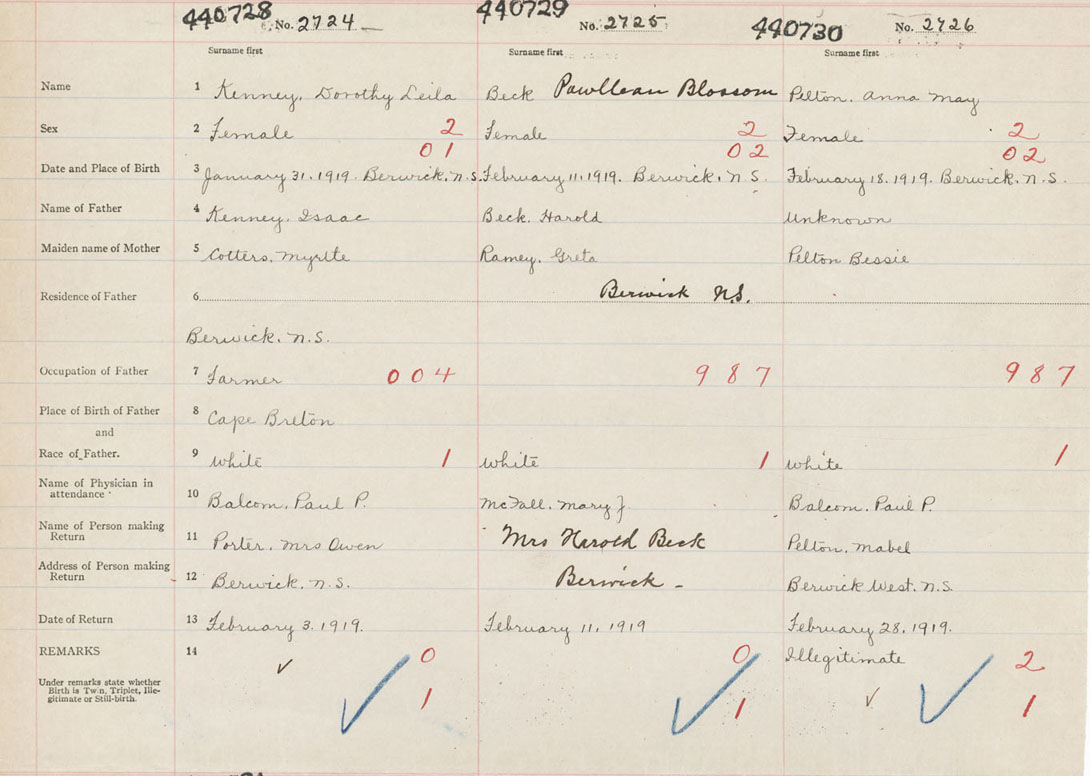 440728 No. 2724 440729 No. 2725 440730 No. 2726
Surname first Surname first Surname first
Name 1 Kenney, Dorothy Leila Beck Pawllean Blossom Pelton, Anna May
Sex 2 Female 2 Female 2 Female 2
01 02 02
Date and Place of Birth 3 January 31, 1919. Berwick, N.S. February 11, 1919. Berwick, N.S. February 18, 1919. Berwick, N.S.
Name of Father 4 Kenney, Isaac Beck, Harold Unknown
Maiden name of Mother 5 Cotters, Myrlte Ramey, Greta Pelton Bessie
Residence of Father 6 Berwick N.S.
Berwick, N.S.
Occupation of Father 7 Farmer 004 987 987
Place of Birth of Father 8 Cape Breton
and
Race of Father. 9 White 1 White 1 White 1
Name of Physician in
attendance 10 Balcom, Paul P. McFall, Mary J. Balcom, Paul P.
Name of Person making
Return 11 Porter, Mrs Owen Mrs Harold Beck Pelton, Mabel
Address of Person making
Return 12 Berwick, N.S. Berwick - Berwick West, N.S.
Date of Return 13 February 3, 1919. February 11, 1919 February 28, 1919.
REMARKS 14 0 0 Illegitimate 2
Under remarks state whether
Birth is Twin, Triplet, Ille-
gitimate or Still-birth. 1 1 1